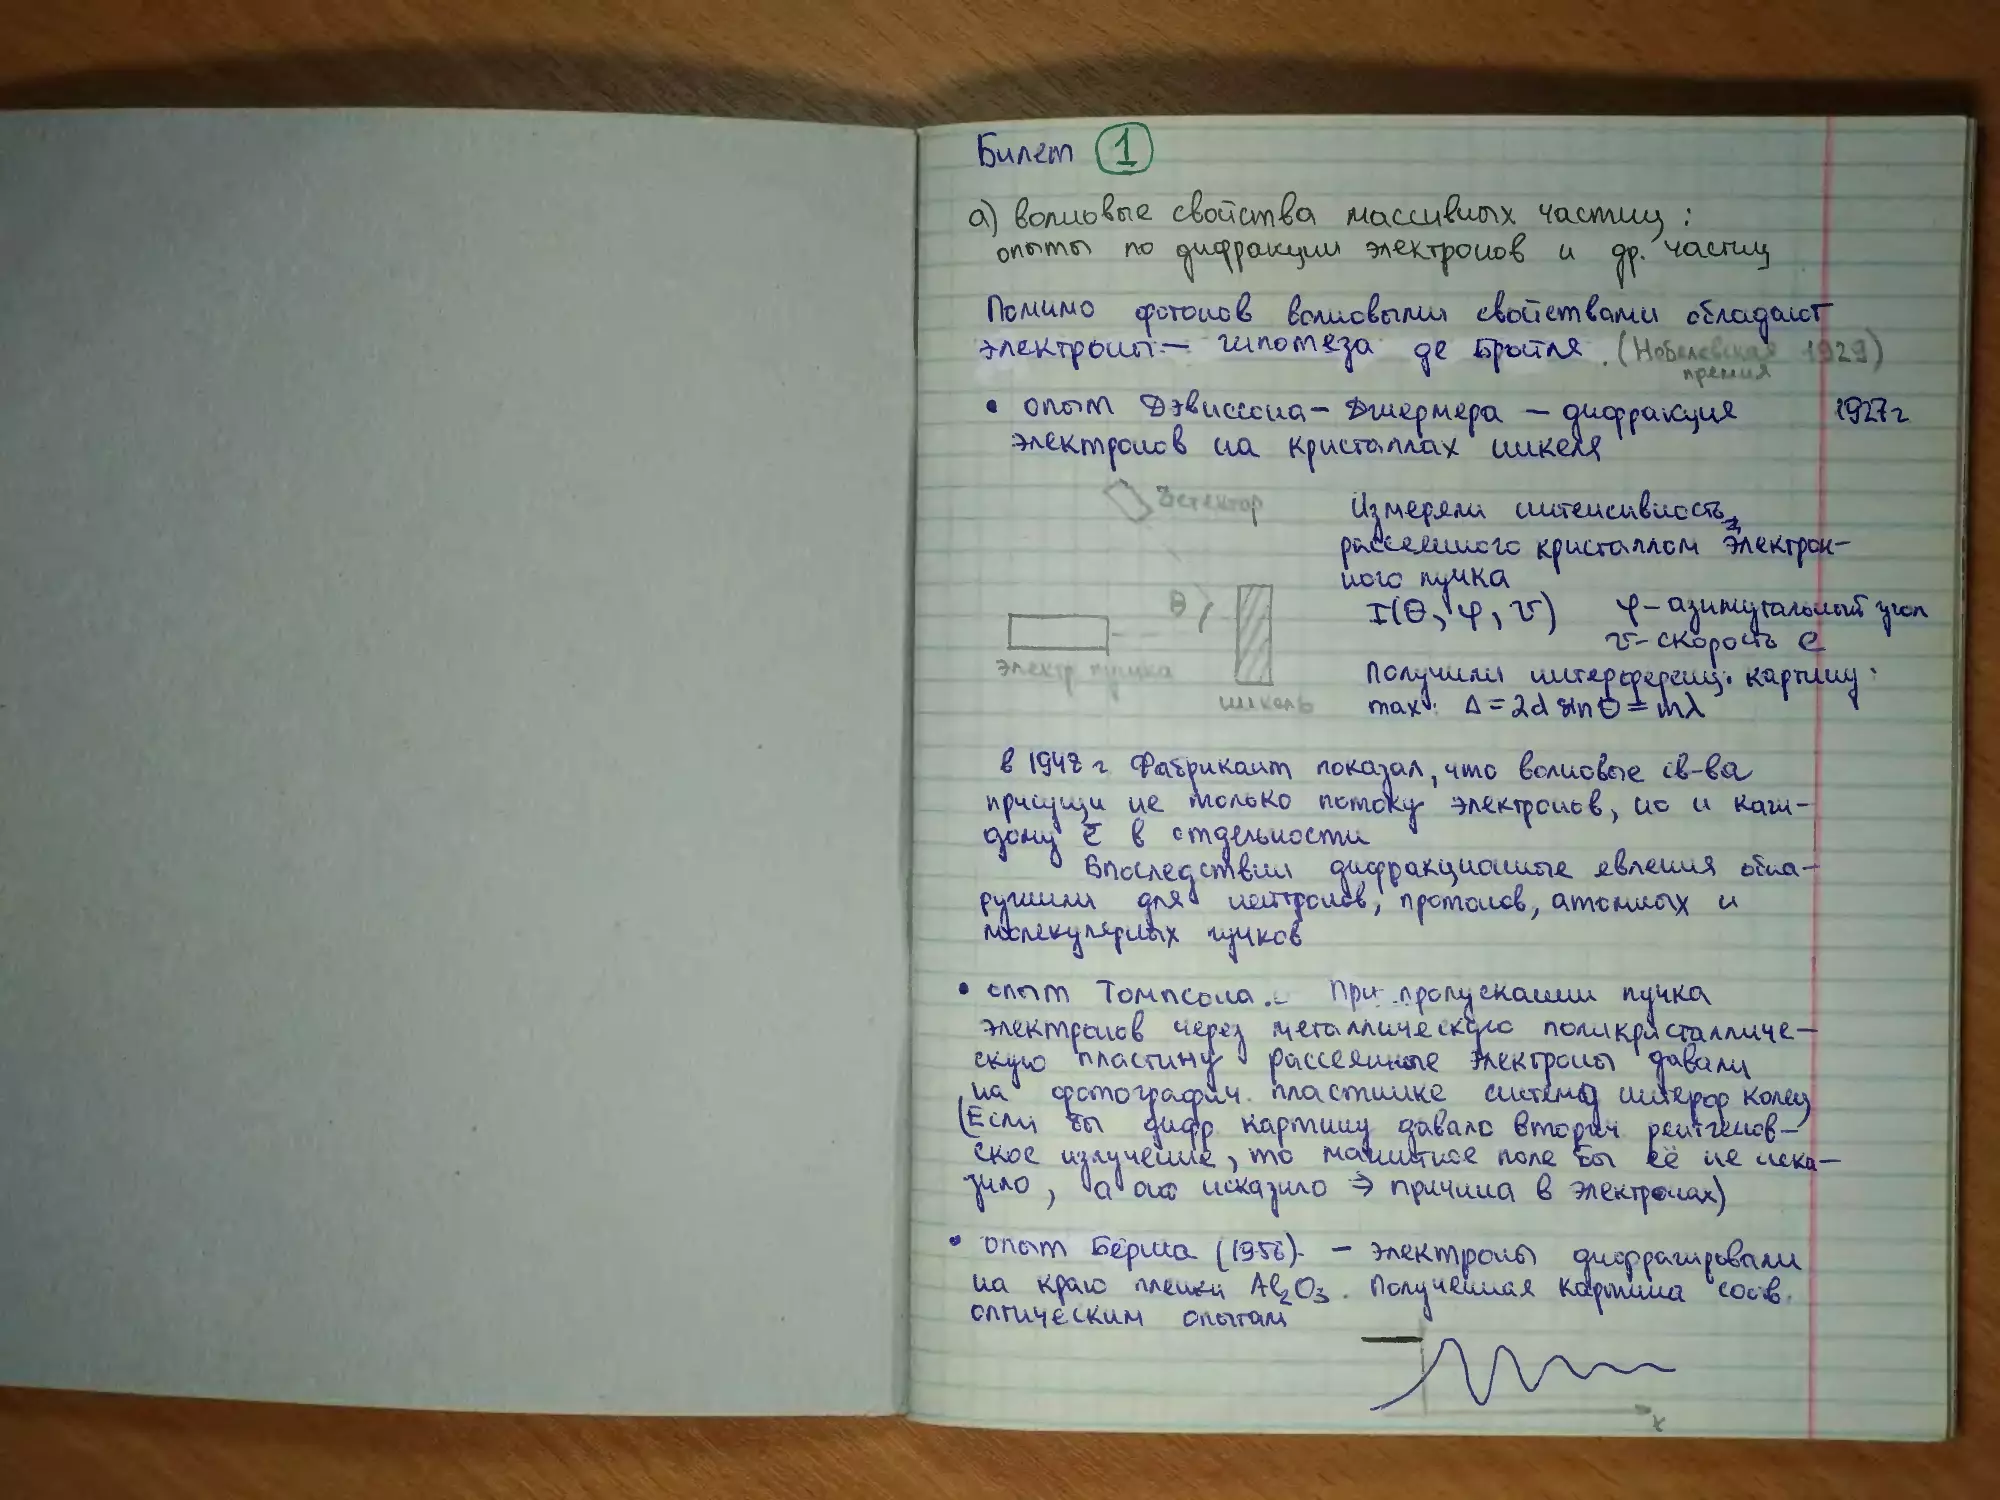 Билет 1
а) волновые свойства массивных частиц :
опыты по дифракции электронов и др. частиц
Помимо фотонов волновыми свойствами обладают
электроны — гипотеза де Бройля. (Нобелевская 1929)
премия
• опыт Дэвиссона – Джермера – дифракция 1927г
электронов на кристаллах никеля
детектор
Измеряли интенсивность
рассеянного кристаллом электрон-
ного пучка
θ
I(θ, φ, v) φ – азимутальный угол
v – скорость e
электр пушка
Получили интерференц. картину:
никель
max: Δ = 2d sin θ = mλ
в 1948 г Фабрикант показал, что волновые св-ва
присущи не только потоку электронов, но и каж-
дому ē в отдельности
Впоследствии дифракционные явления обна-
ружили для нейтронов, протонов, атомных и
молекулярных пучков
• опыт Томпсона. При пропускании пучка
электронов через металлическую поликристалличе-
скую пластину рассеянные электроны давали
на фотографич. пластинке систему интерф колец
(Если бы дифр картину давало вторич рентгенов-
ское излучение, то магнитное поле бы её не иска-
зило, а оно исказило ⇒ причина в электронах)
• опыт Бёрша (1956) – электроны дифрагировали
на краю пленки Al₂O₃. Полученная картина соотв.
оптическим опытам
x